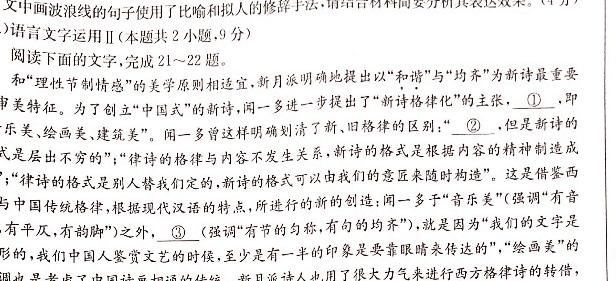 文中画波浪线的句子使用了比喻和拟人的修辞手法,请结合材料简要分析其表达效果。(4分)
)语言文字运用Ⅱ(本题共2小题,9分)
阅读下面的文字,完成21~22题。
和“理性节制情感”的美学原则相适宜,新月派明确地提出以“和谐”与“均齐”为新诗最重要
审美特征。为了创立“中国式”的新诗,闻一多进一步提出了“新诗格律化”的主张, ① ,即
乐美、绘画美、建筑美”。闻一多曾这样明确划清了新、旧格律的区别:“ ② ,但是新诗的
式是层出不穷的”;“律诗的格律与内容不发生关系,新诗的格式是根据内容的精神制造成
”;“律诗的格式是别人替我们定的,新诗的格式可以由我们的意匠来随时构造”。这是借鉴西
与中国传统格律,根据现代汉语的特点,所进行的新的创造;闻一多于“音乐美”(强调“有音
,有平仄,有韵脚”)之外, ③ (强调“有节的匀称,有句的均齐”),就是因为“我们的文字是
形的,我们中国人鉴赏文艺的时候,至少是有一半的印象是要靠眼睛来传达的”,“绘画美”的
调也是考虑了中国诗画相通的传统。新月派诗人也用了很大力气来进行西方格律诗的转借,